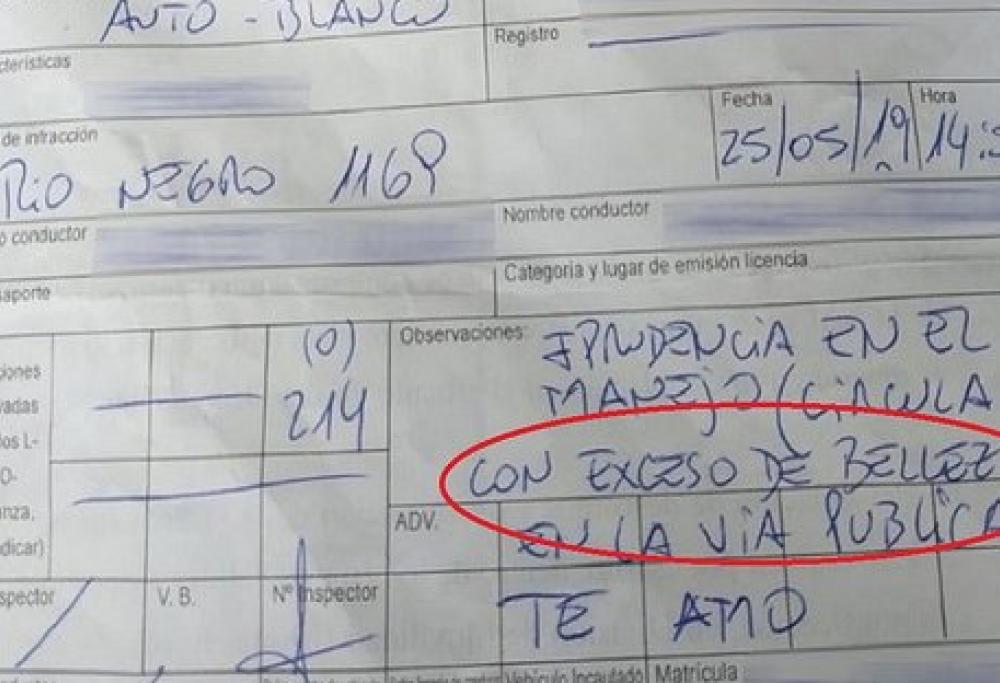 AUTO - BLANCO
Registro
cterísticas
Fecha
Hora
de infracción
25/05/19
14:
RIO NEGRO 1169
o conductor
Nombre conductor
saporte
Categoria y lugar de emisión licencia
(0)
Observaciones:
IPRUDENCIA EN EL
iones
vadas
214
MANEJO (CIRCULA
os L-
CON EXCESO DE BELLEZ
O-
anza,
ADV.
EN LA VIA PUBLICA
dicar)
spector
V. B.
Nº Inspector
TE AMO
Vehículo Incautado
Matrícula